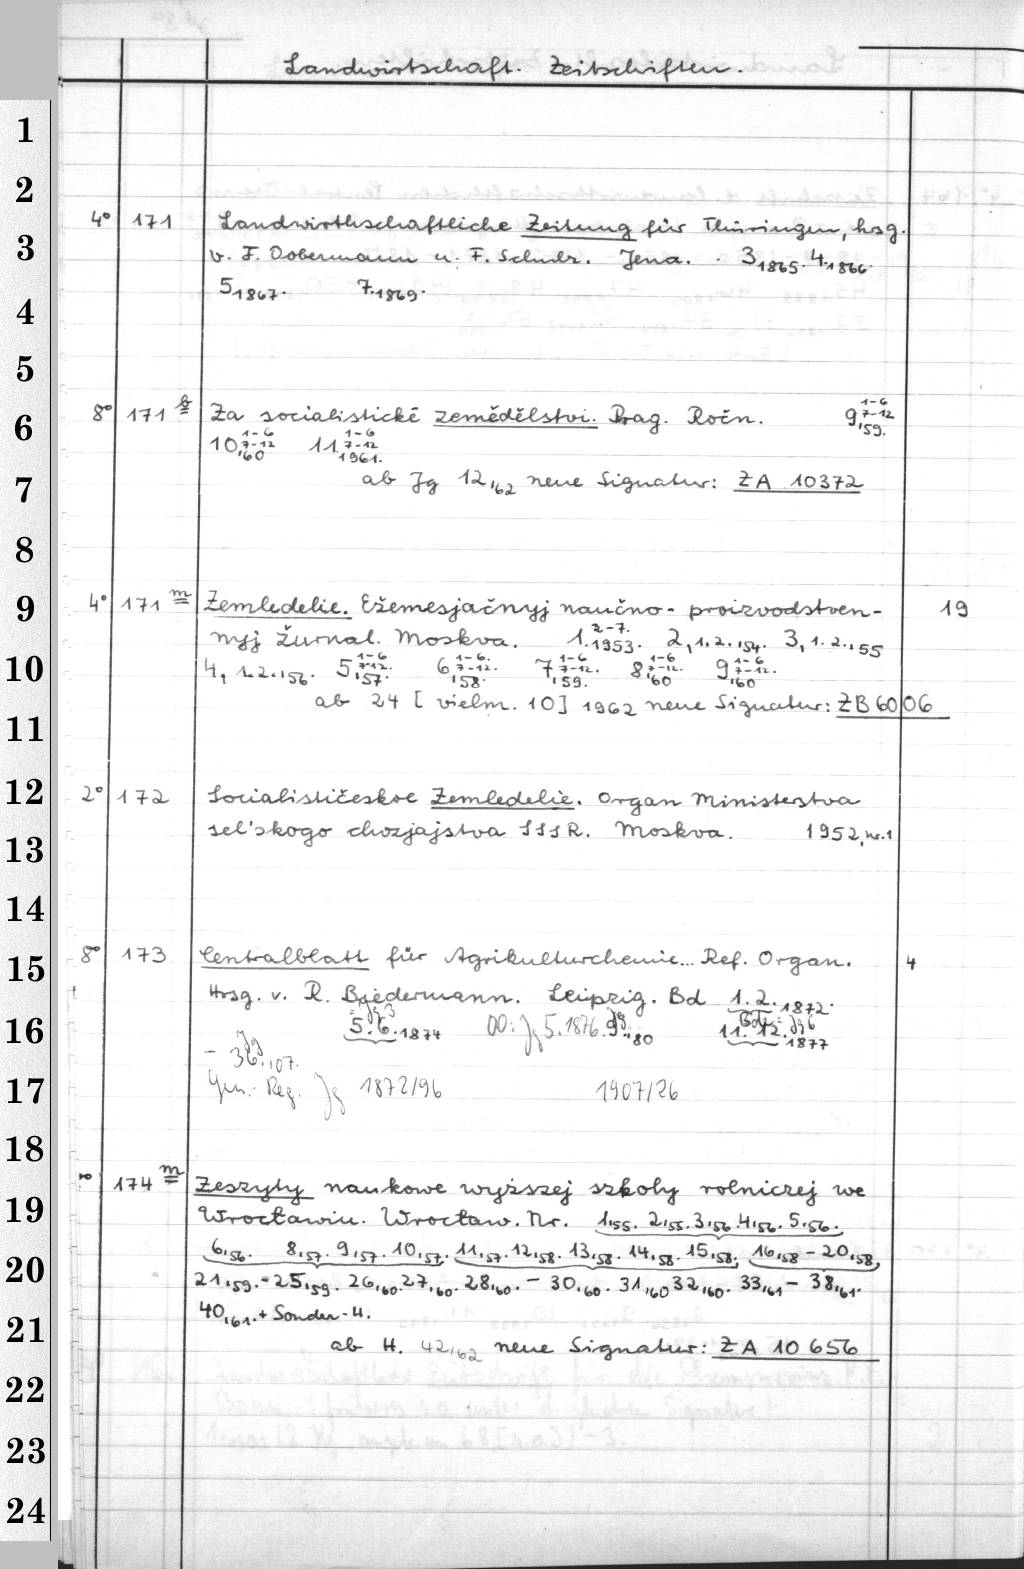 Landwirtschaft. Zeitschriften.
1
2
4° 171 Landwirthschaftliche Zeitung für Thüringen, hsg.
3
v. F. Dobermann u. F. Schulz. Jena. 3,1865. 4,1866.
5,1867. 7,1869.
4
5
8° 171 g Za socialistické zemědělstvi. Prag. Ročn. 9 1-6 7-12 ,59.
6
10 1-6 7-12 ,60 11 1-6 7-12 1961.
7
ab Jg 12,62 neue Signatur: ZA 10372
8
9
4° 171 m Zemledelie. Ežemesjačnyj naučno-proizvodstven- 19
nyj žurnal. Moskva. 1. 2-7. 1953. 2, 1. 2. ,54. 3, 1. 2. ,55
10
4, 1.2.,56. 5 1-6 7-12. ,57. 6 1-6. 7-12. ,58. 7 1-6 7-12. ,59. 8 1-6 7-12. ,60 9 1-6 7-12. ,60
ab 24 [vielm. 10] 1962 neue Signatur: ZB 6006
11
12
2° 172 Socialističeskoe Zemledelie. Organ Ministerstva
sel'skogo chozjajstva SSSR. Moskva. 1952, nr. 1
13
14
8° 173 Centralblatt für Agrikulturchemie... Ref. Organ. 4
15
Hrsg. v. R. Biedermann. Leipzig. Bd 1. 2. 1872.
16
= Jg 3 5. 6. 1874 Jg 5. 1876. Jg 9,80 Bde = Jg 6 11. 12. 1877
– Jg 36,07.
17
Gen.-Reg. Jg 1872/96 1907/26
18
174 m Zeszyty naukowe wyższej szkoły rolniczej we
19
Wrocławiu. Wrocław. Nr. 1,55. 2,55. 3,56. 4,56. 5,56.
6,56. 8,57. 9,57. 10,57. 11,57. 12,58. 13,58. 14,58. 15,58; 16,58 – 20,58,
20
21,59. – 25,59. 26,60. 27,60. 28,60. – 30,60. 31,60 32,60. 33,61 – 38,61.
40,61. + Sonder-H.
21
ab H. 42,62 neue Signatur: ZA 10 656
22
23
24